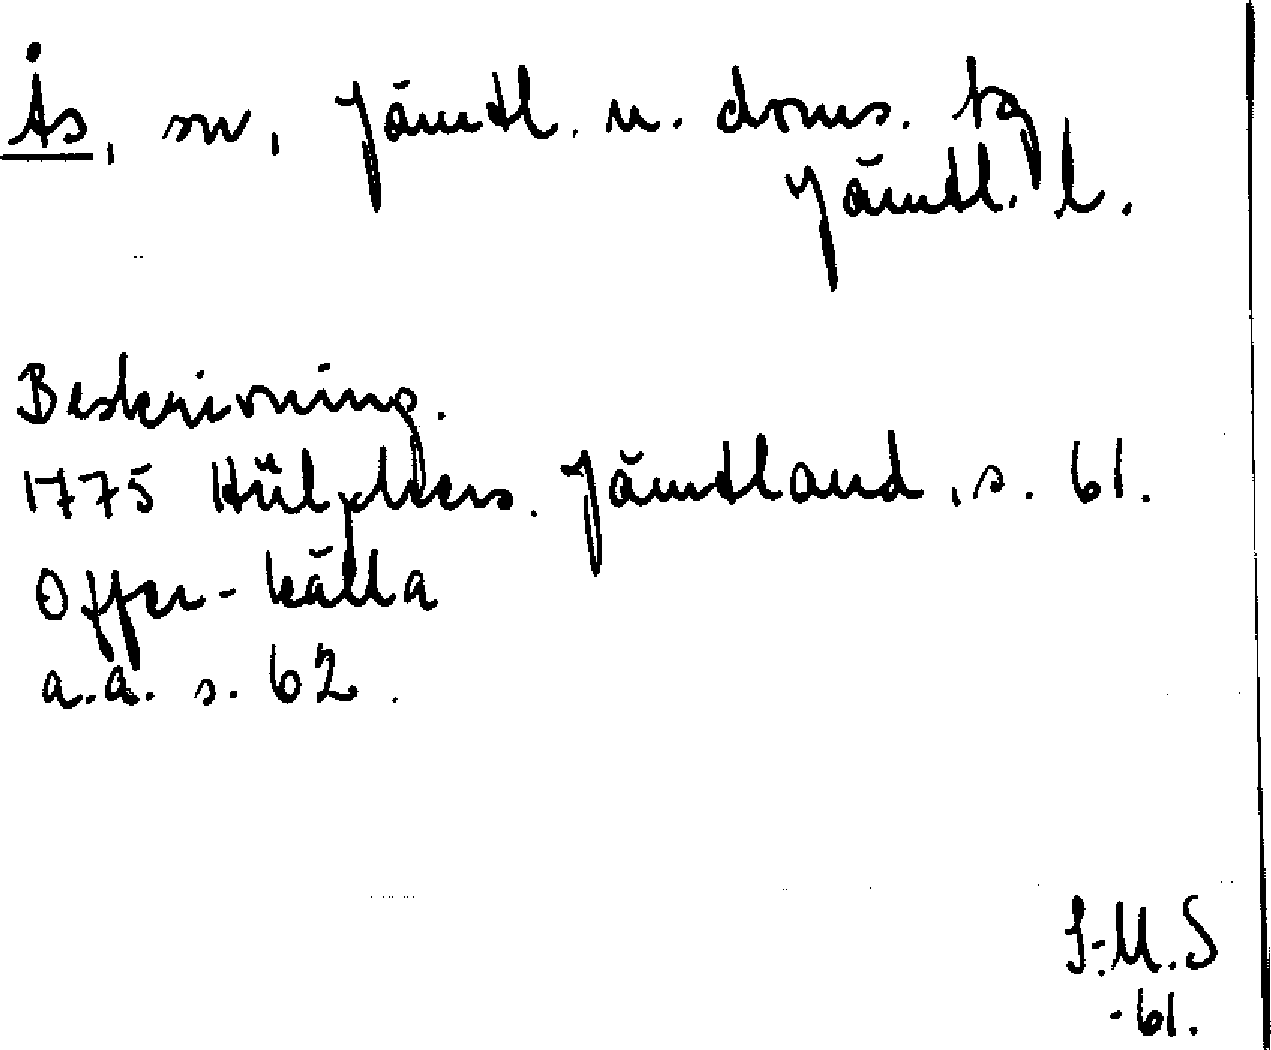 Ås, sn, Jämtl. n. doms. tg
Jämtl. l.
Beskrivning.
1775 Hülphers. Jämtland, s. 61.
Offer-källa
a.a. s. 62.
I-M.S
-61.